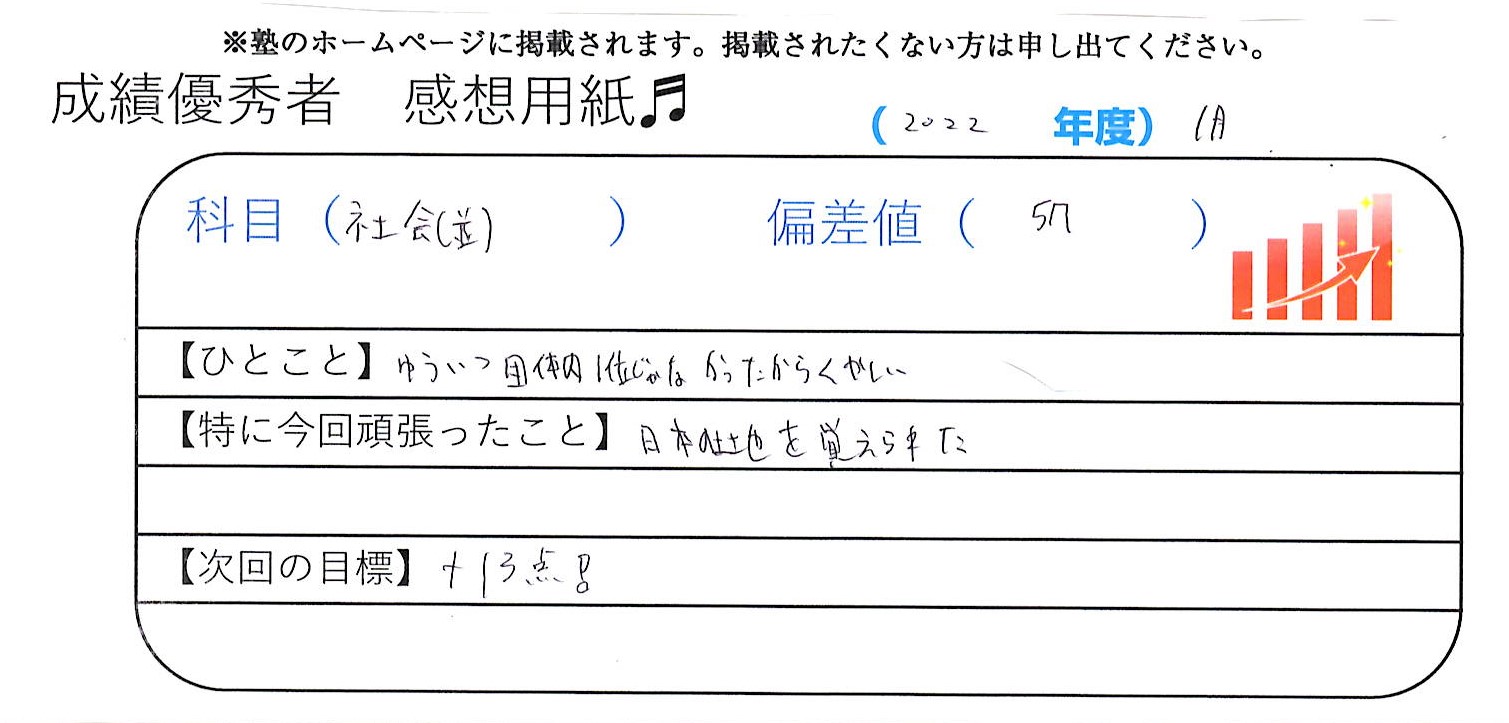 ※塾のホームページに掲載されます。掲載されたくない方は申し出てください。
成績優秀者 感想用紙♬
(2022 年度) 1月
科目(社会(並)) 偏差値(57)
【ひとこと】ゆういつ団体内1位じゃなかったからくやしい
【特に今回頑張ったこと】日本の土地を覚えられた
【次回の目標】+13点!